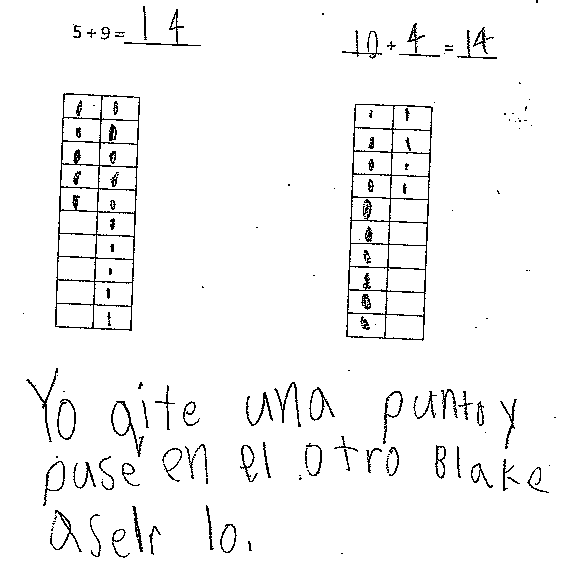 5+9= 14
10 + 4 = 14
Yo qite una punto y
puse en el otro Blake
aselr lo.